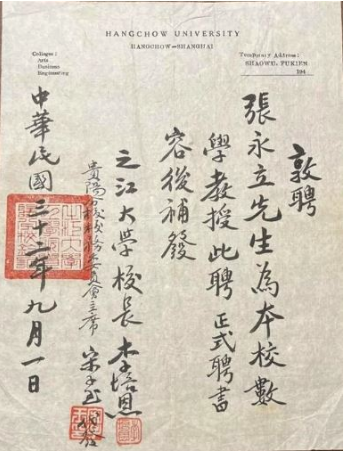 HANGCHOW UNIVERSITY
HANGCHOW—SHANGHAI
Colleges:
Arts
Business
Engineering
Temporary Address:
SHAOWU, FUKIEN
194
敦聘
張永立先生為本校數
學教授此聘 正式聘書
容後補發
之江大學校長 李培恩
貴陽分校校務委員會主席 宋
中華民國三十二年九月一日